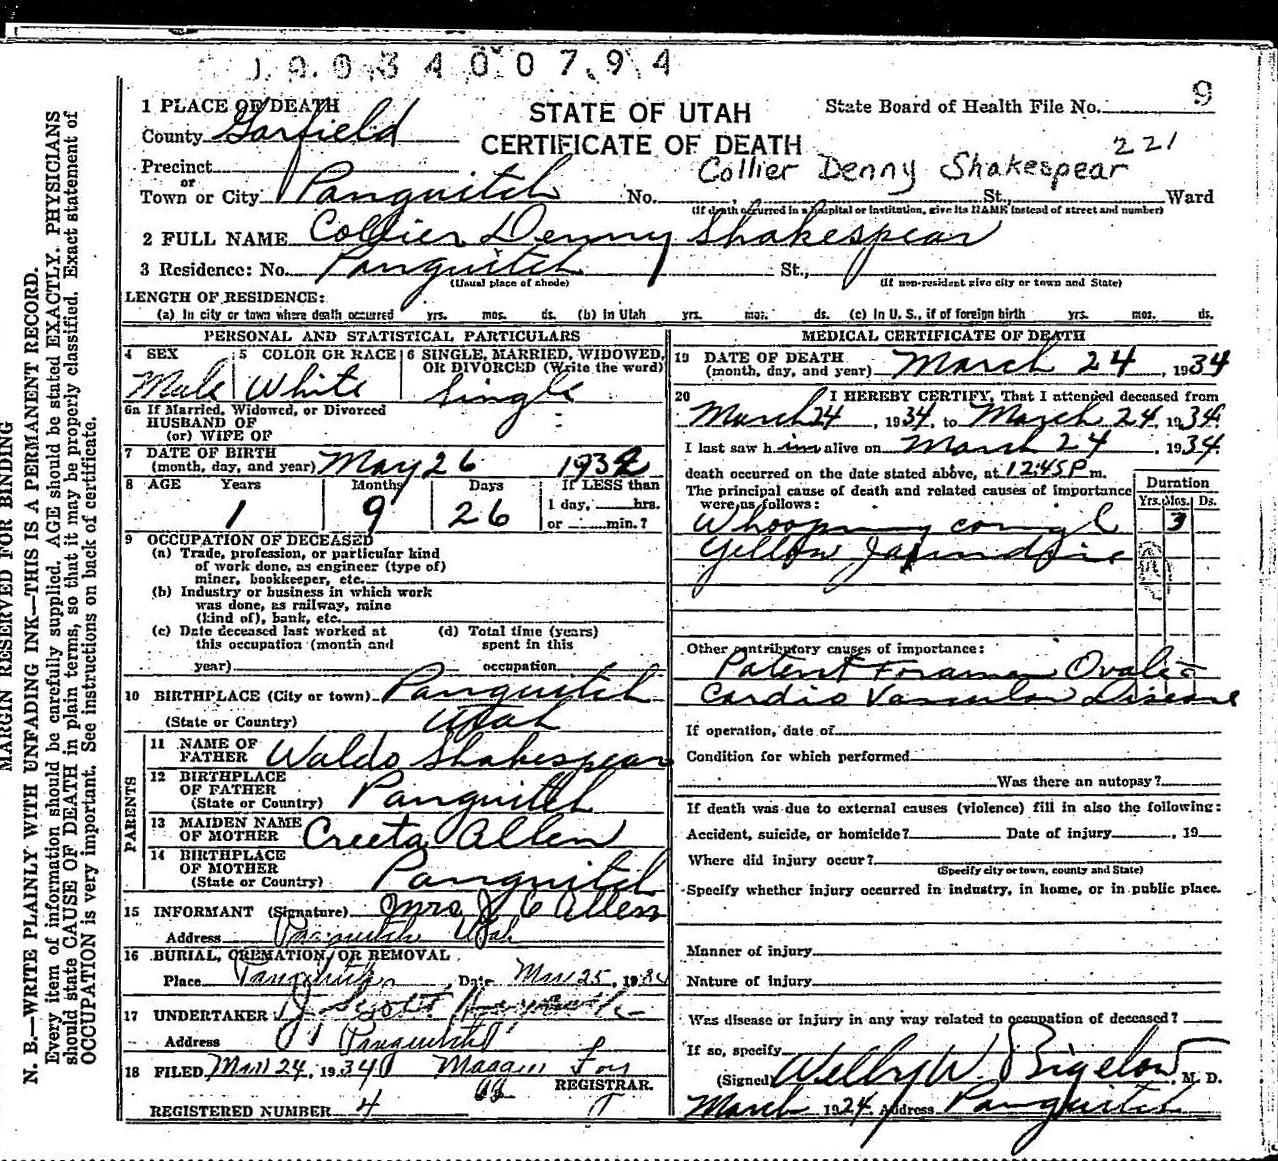 19034 00794
9
1 PLACE OF DEATH
County Garfield
STATE OF UTAH
CERTIFICATE OF DEATH
State Board of Health File No.
221
Collier Denny Shakespear
Precinct
or
Town or City Panguitch No. St., Ward
(If death occurred in a hospital or institution, give its NAME instead of street and number)
2 FULL NAME Collier Denny Shakespear
3 Residence: No. Panguitch St.,
(Usual place of abode) (If non-resident give city or town and State)
LENGTH OF RESIDENCE:
(a) In city or town where death occurred yrs. mos. ds. (b) In Utah yrs. mos. ds. (c) In U. S., if of foreign birth yrs. mos. ds.
PERSONAL AND STATISTICAL PARTICULARS
4 SEX Male
5 COLOR OR RACE White
6 SINGLE, MARRIED, WIDOWED,
OR DIVORCED (Write the word)
Single
6a If Married, Widowed, or Divorced
HUSBAND OF
(or) WIFE OF
7 DATE OF BIRTH
(month, day, and year) May 26 1932
8 AGE Years Months Days If LESS than
1 9 26 1 day, hrs.
or min.?
9 OCCUPATION OF DECEASED
(a) Trade, profession, or particular kind
of work done, as engineer (type of)
miner, bookkeeper, etc.
(b) Industry or business in which work
was done, as railway, mine
(kind of), bank, etc.
(c) Date deceased last worked at
this occupation (month and
year)
(d) Total time (years)
spent in this
occupation
10 BIRTHPLACE (City or town) Panguitch
(State or Country) Utah
PARENTS
11 NAME OF
FATHER Waldo Shakespear
12 BIRTHPLACE
OF FATHER
(State or Country) Panguitch
13 MAIDEN NAME
OF MOTHER Creeta Allen
14 BIRTHPLACE
OF MOTHER
(State or Country) Panguitch
15 INFORMANT (Signature) Mrs J C Allen
Address Panguitch Utah
16 BURIAL, CREMATION, OR REMOVAL
Place Panguitch, Date Mar 25, 1934
17 UNDERTAKER J Scott
Address Panguitch
18 FILED Mar 24, 1934 Foy
REGISTRAR.
REGISTERED NUMBER 4
MEDICAL CERTIFICATE OF DEATH
19 DATE OF DEATH
(month, day, and year) March 24, 1934
20 I HEREBY CERTIFY, That I attended deceased from
March 24, 1934, to March 24, 1934
I last saw him alive on March 24, 1934.
death occurred on the date stated above, at 12:45 P m.
The principal cause of death and related causes of importance
were as follows:
Duration
Yrs. Mos. Ds.
Whooping cough 3
Yellow Jaundice
Other contributory causes of importance:
Patent Foramen Ovale
Cardio Vascular Disease
If operation, date of
Condition for which performed
Was there an autopsy?
If death was due to external causes (violence) fill in also the following:
Accident, suicide, or homicide? Date of injury, 19
Where did injury occur?
(Specify city or town, county and State)
Specify whether injury occurred in industry, in home, or in public place.
Manner of injury
Nature of injury
Was disease or injury in any way related to occupation of deceased?
If so, specify
(Signed) Welby W. Bigelow, M. D.
March 1924 Address Panguitch
MARGIN RESERVED FOR BINDING
N. B.—WRITE PLAINLY WITH UNFADING INK—THIS IS A PERMANENT RECORD.
Every item of information should be carefully supplied. AGE should be stated EXACTLY. PHYSICIANS
should state CAUSE OF DEATH in plain terms, so that it may be properly classified. Exact statement of
OCCUPATION is very important. See instructions on back of certificate.